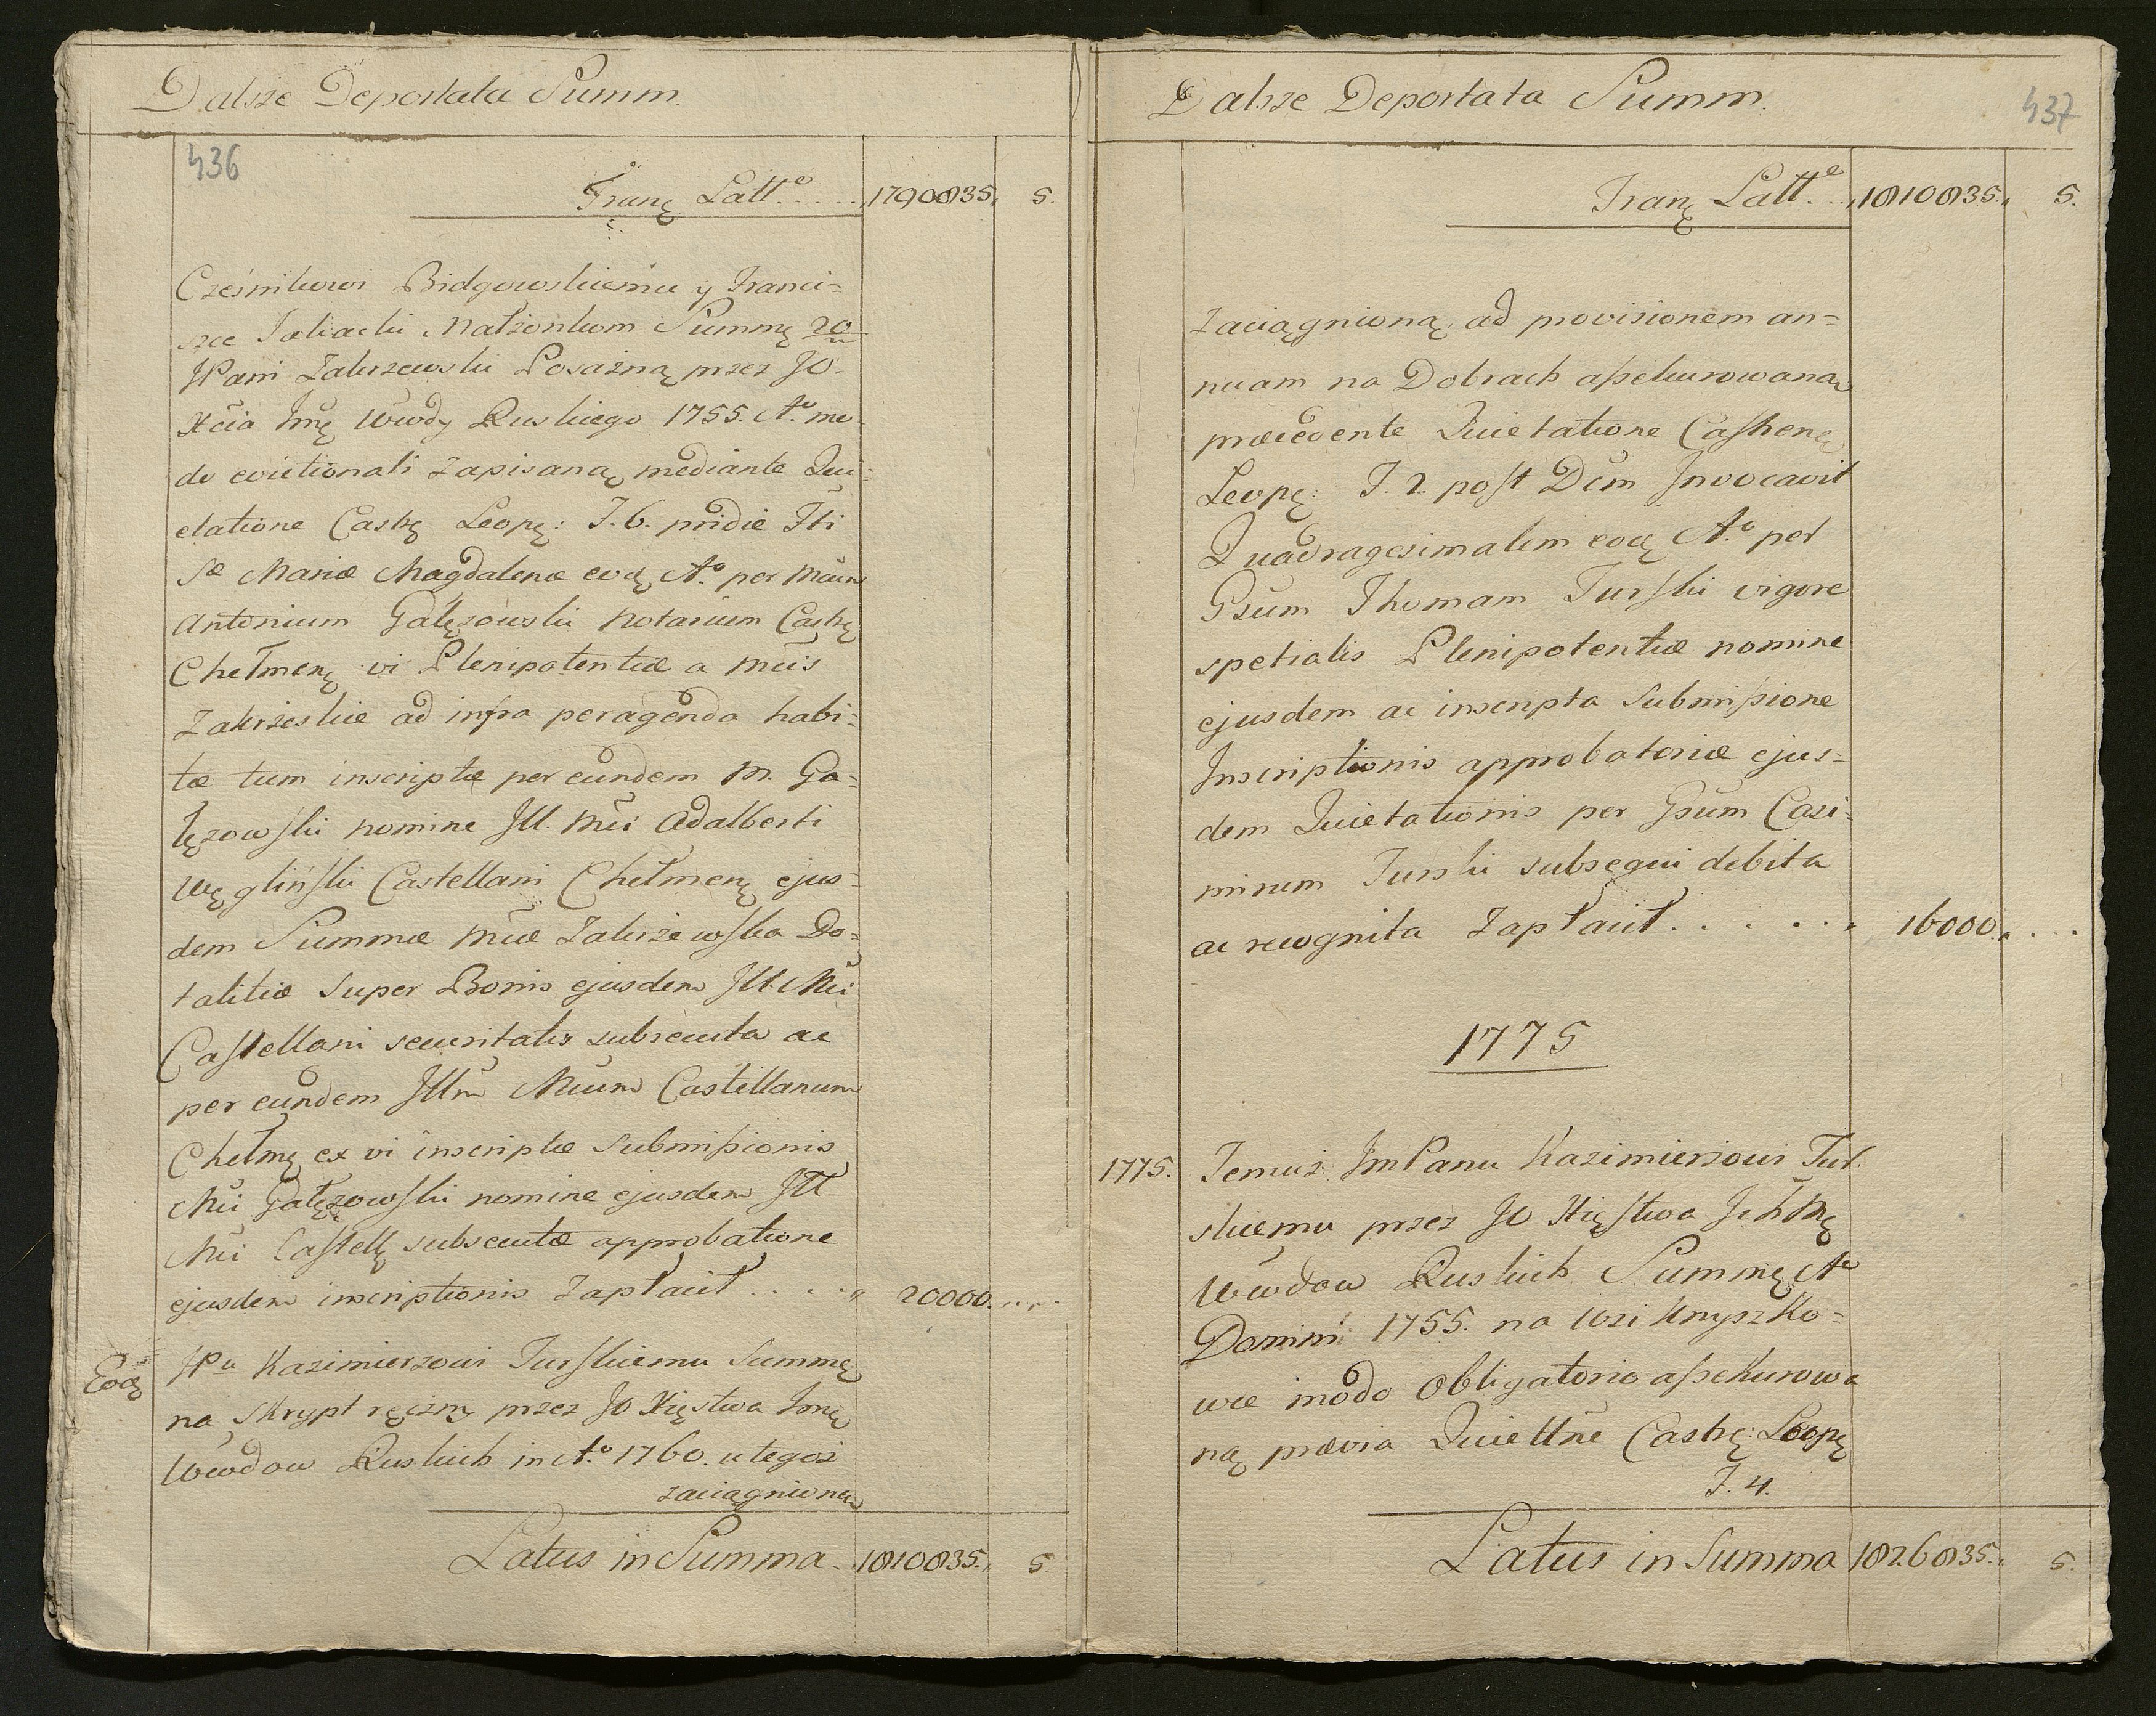 Dalsze Deportata Summ.
436
Tranę Latt.e .... 1790835. 5.
Cześnikowi Bidgowskiemu y Franci=
szce Małżonkom Summę 20
JPani Zakrzewski Posażną przez JO.
Xcia Jmę Wwdy Ruskiego 1755. Ao. mo
do evictionali zapisaną, mediante Qui=
etatione Castrę Leopę: F. 6. pridie Fti
Sæ Mariæ Magdalenæ eodę Ao. per Mcum
Antonium Gałęzowski Notarium Castrę
Chełmenę vi Plenipotentiæ a Mcis
Zakrzeskie ad infra peragenda habi=
tæ tum inscriptæ per eundem M. Ga=
łęzowski nomine Ill. Mci Adalberti
Węgliński Castellani Chełmenę ejus=
dem Summæ Mcæ Zakrzewska Do=
talitiæ super Bonis ejusdem Ill. Mci
Castellani securitatis subsecuta ac
per eundem Illm Mcum Castellanum
Chełmę ex vi inscriptæ Submissionis
Mci Gałęzowski nomine ejusdem Ill
Mci Castellę subsecutæ approbatione
ejusdem inscriptionis Zapłacił .... 20000. ....
Eodę JPu Kazimierzowi Turskiemu Summę
na Skrypt ręczny przez JO Xięstwa Jmę
Wwdow Ruskich in Ao. 1760. u tegoż
zaciągnioną
Latus in Summa 1810835. 5.
Dalsze Deportata Summ.
437
Tranę Latt.e .. 1810835. 5.
zaciągnioną, ad provisionem an=
nuam na Dobrach assekurowaną
præcedente Quietatione Castrenę
Leopę: F. 2. post Dcm Invocavit
Quadragesimalem eodę Ao. per
Gsum Thomam Turski vigore
spetialis Plenipotentiæ nomine
ejusdem ac inscripta Submissione
Inscriptionis approbatoriæ ejus=
dem Quietationis per Gsum Casi=
mirum Turski subsequi debita
ac recognita Zapłacił ...... 16000. ...
1775
1775. Temuż JmPanu Kazimierzowi Tur
skiemu przez JO Xięstwa Jchmę
Wwdow Ruskich Summę Ao
Domini 1755. na Wsi Knyszko=
wce modo Obligatorio assekurowa
ną prævia Quiettne Castrę: Leopę
F. 4.
Latus in Summa 1826835. 5.